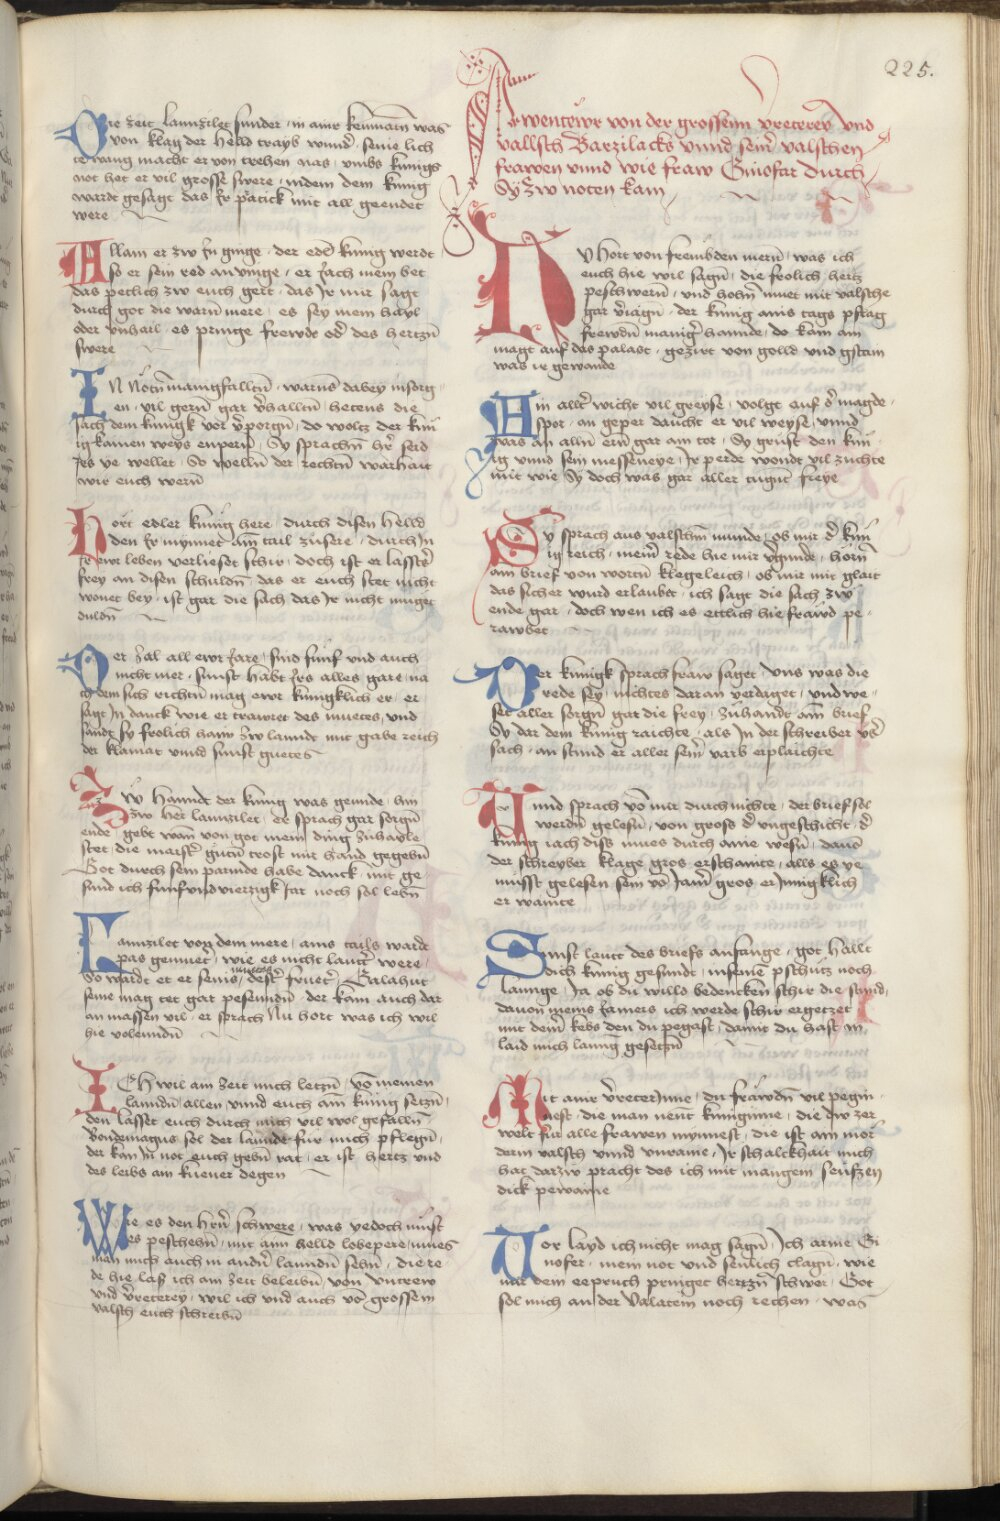 225.
Die zeit lannzilet sunder · in ainr kemnatn was
von klag der helld trayb wunder senie lich
te wang macht er von trehen nas · umbs künigs
not het er vil grosse swere · indem dem künig
wardt gesagt das er patick mit all geendet
were
Allain er zw jn ginge · der edel künig werdt
so er sein red anvinge · er sach mein bet
das petlich zw euch gert · das Jr mir sagt
durch got die warn mere · es sey mein hayl
oder vnhail · es pringe frewde od des hertzn
swere
IN Nötn manigfalltn · warns dabey in sorg
en · vil gern gar vhalltn · hetens die
sach dem künigk vor vporgn · do woltz der kün
ig kainen weys enpern · Sy sprachn her seid
Jrs ye wellet · So welln der rechtn warhait
wir euch wern
Hört edler künig here · durch disen helld
den er mynnet am tail zusere · durch Jn
er ewr leben verlieset schir · doch ist er lasster
frey an disen schuldn · das er euch stet nicht
wonet bey · ist gar die sach das Jr nicht muget
duldn
Der zal all ewr Jare · sind fünf vnd auch
nicht mer · sunst habt Jrs alles gare · na
ch dem sich richtn mag ewr künigklich er · er
sagt Jn danck wie er trawret des muetes · vnd
sandt sy frolich haim zw lannde mit gabe reich
der klainat vnnd sunst guetes
Zw hannde der künig was geende · hin
zw her lannzilet · er sprach gar sorgn
ende · gebt wan von got mein ding zuhayle
stet · die maister gutn trost mir hand gegebn
Got durch sein parmde habe danck · mit ge
sund ich fünfvndvierzigk Jar noch sol lebn
Lannzilet von dem mere · ains tails wardt
pas gemuet · wie es nicht lautter were
So wardt et er seins muetes dester fruet · Galahut
seine mag tet gar pesenndn · der kam auch dar
an massen vil · er sprach Nu hort was ich wil
hie volenndn
ICh wil ain zeit mich letzn · von meinen
lanndn allen · vnnd euch ain künig setzn ·
den lasset euch durch mich vil wol gefalln
Bondemagus sol der lannde für mich pflegn ·
der kan Jn not euch gebn rat · er ist hertz vnd
des leibs ain kuener degen
Wie es den hern schwere · was yedoch must
es peschehn · mit aim helld lobepere · mues
man mich auch in andern lanndn sehn · die re
de hie las ich ain zeit beleibn · von vntrew
vnd vreterey · wil ich vnd auch von grossem
valsch euch schreibn
Abentewr von der grossenn vreterey vnd
vallsch Barzilacks vnnd seiner valschen
frawen vnnd wie fraw Ginofar durch
Sy zw noten kam
DV Hort von frembden mern · was ich
euch hie wil sagn · die frolich hertz
peschwern · vnd hohn muet mit valsche
gar veriagn · der künig ains tags pflag
frewdn maniger hannde · do kam ain
magt auf das palast · gezirt von golld vnd gstain
was ir gewande
Ain allter wicht vil greyse · volgt auf der magde
spor · an geper daucht er vil weyse · vnnd
was an alln ern gar ain tor · Sy grust den kün
ig vnnd sein messeneye · Jr perde wondt vil zuchte
mit wie sy doch was gar aller tugnt freye
Sy sprach aus valschm munde · ob mir der kün
ig reich · meiner rede hie mir vgunde · horn
ain brief von wortn klegeleich · ob mir mit glait
das sicher wurd erlaubet · ich sagt die sach zw
ende gar · doch wen ich es ettlich hie fräwd pe
rawbet
Der künigk sprach fraw saget · vns was die
rede sey · nichtes daran verdaget · vnd we
set aller sorgn gar die frey · zuhandt ain brief
Sy dar dem künig raichte · als Jn der schreiber vber
sach · an stund er aller seiner varb erplaichte
Er und sprach von mir durch nichte · der brief sol
werdn gelesn · von gross der vngeschicht · der
künig iach diss mues durch aine wesn · dauon
der schreyber klage gros erschainte · alls es ye
musst gelesen sein von Jamer gros er Jnnigklich
er wainte
Sunst laut des briefs anfange · got hallt
dich künig gesundt · in seine pschutz noch
lannge · Ja ob du wills bedencken schir die stund,
dauon meins Jamers ich werde schir ergetzet
mit dem kebs den du pegast · damit du hast in
laid mich lanng gesetzn
Mit ainr vreterinne · du fräwdn vil pegin
nest · die man nent küniginne · die Jw zer
welt für alle frawen mynnest · die ist ain mor
derin valsch vnnd vnraine · Jr schalckhait mich
hat darzw pracht des ich mit mangem seufzen
dick pewaine
Vor layd ich nicht mag sagn · Ich arme Gi
nofer · mein not vnd senlich clagn · wie
mir dem eepruch pringet hertzn schwer · Got
sol mich an der Valatein noch rechen · was